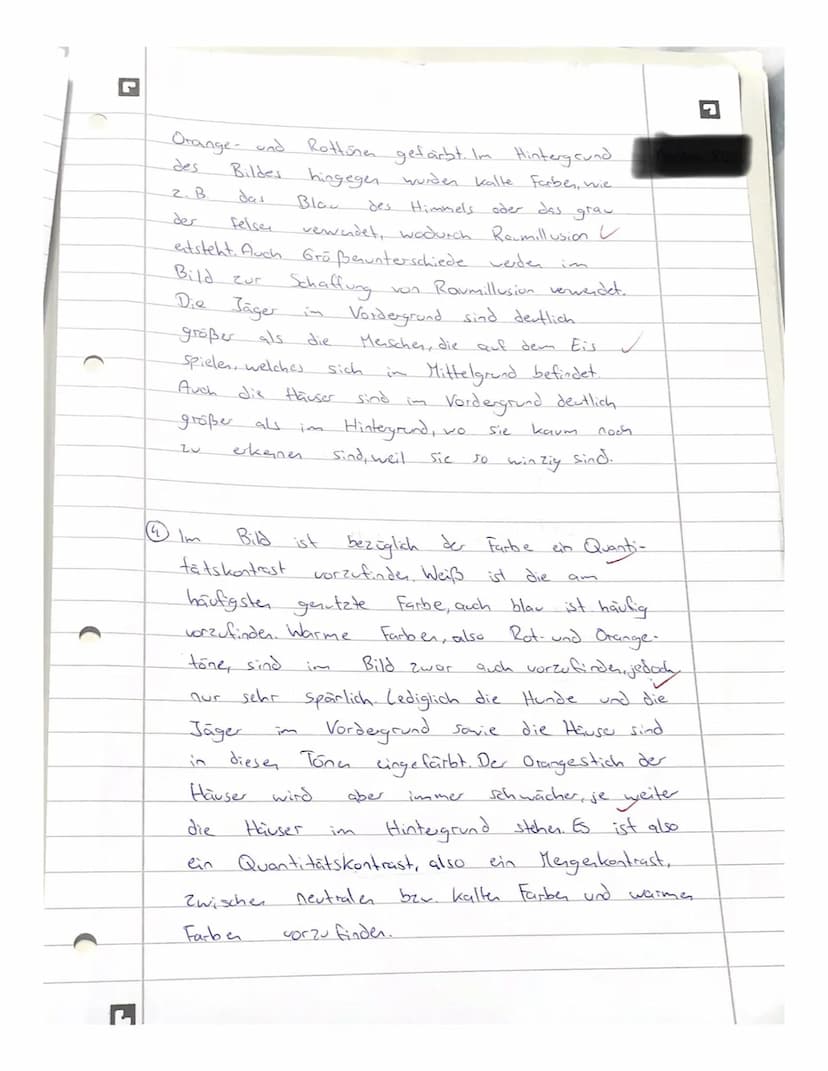 Orange- und Rottönen gefärbt. Im Hintergrund
des Bildes hingegen wurden kalte Farben, wie
z.B das Blau des Himmels oder das grau
der Felsen verwendet, wodurch Raumillusion
entsteht. Auch Größenunterschiede werden im
Bild zur Schaffung von Raumillusion verwendet.
Die Jäger im Vordergrund sind deutlich
größer als die Menschen, die auf dem Eis
spielen, welches sich im Mittelgrund befindet.
Auch die Häuser sind im Vordergrund deutlich
größer als im Hintergrund, wo sie kaum noch
zu erkennen sind, weil sie so winzig sind.
4 Im Bild ist bezüglich der Farbe ein Quanti-
tätskontrast vorzufinden. Weiß ist die am
häufigsten genutzte Farbe, auch blau ist häufig
vorzufinden. Warme Farben, also Rot- und Orange-
töne, sind im Bild zwar auch vorzufinden, jedoch
nur sehr spärlich. Lediglich die Hunde und die
Jäger im Vordergrund sowie die Häuser sind
in diesen Tönen eingefärbt. Der Orangestich der
Häuser wird aber immer schwächer, je weiter
die Häuser im Hintergrund stehen. Es ist also
ein Quantitätskontrast, also ein Mengenkontrast,
zwischen neutralen bzw. kalten Farben und warmen
Farben vorzufinden.